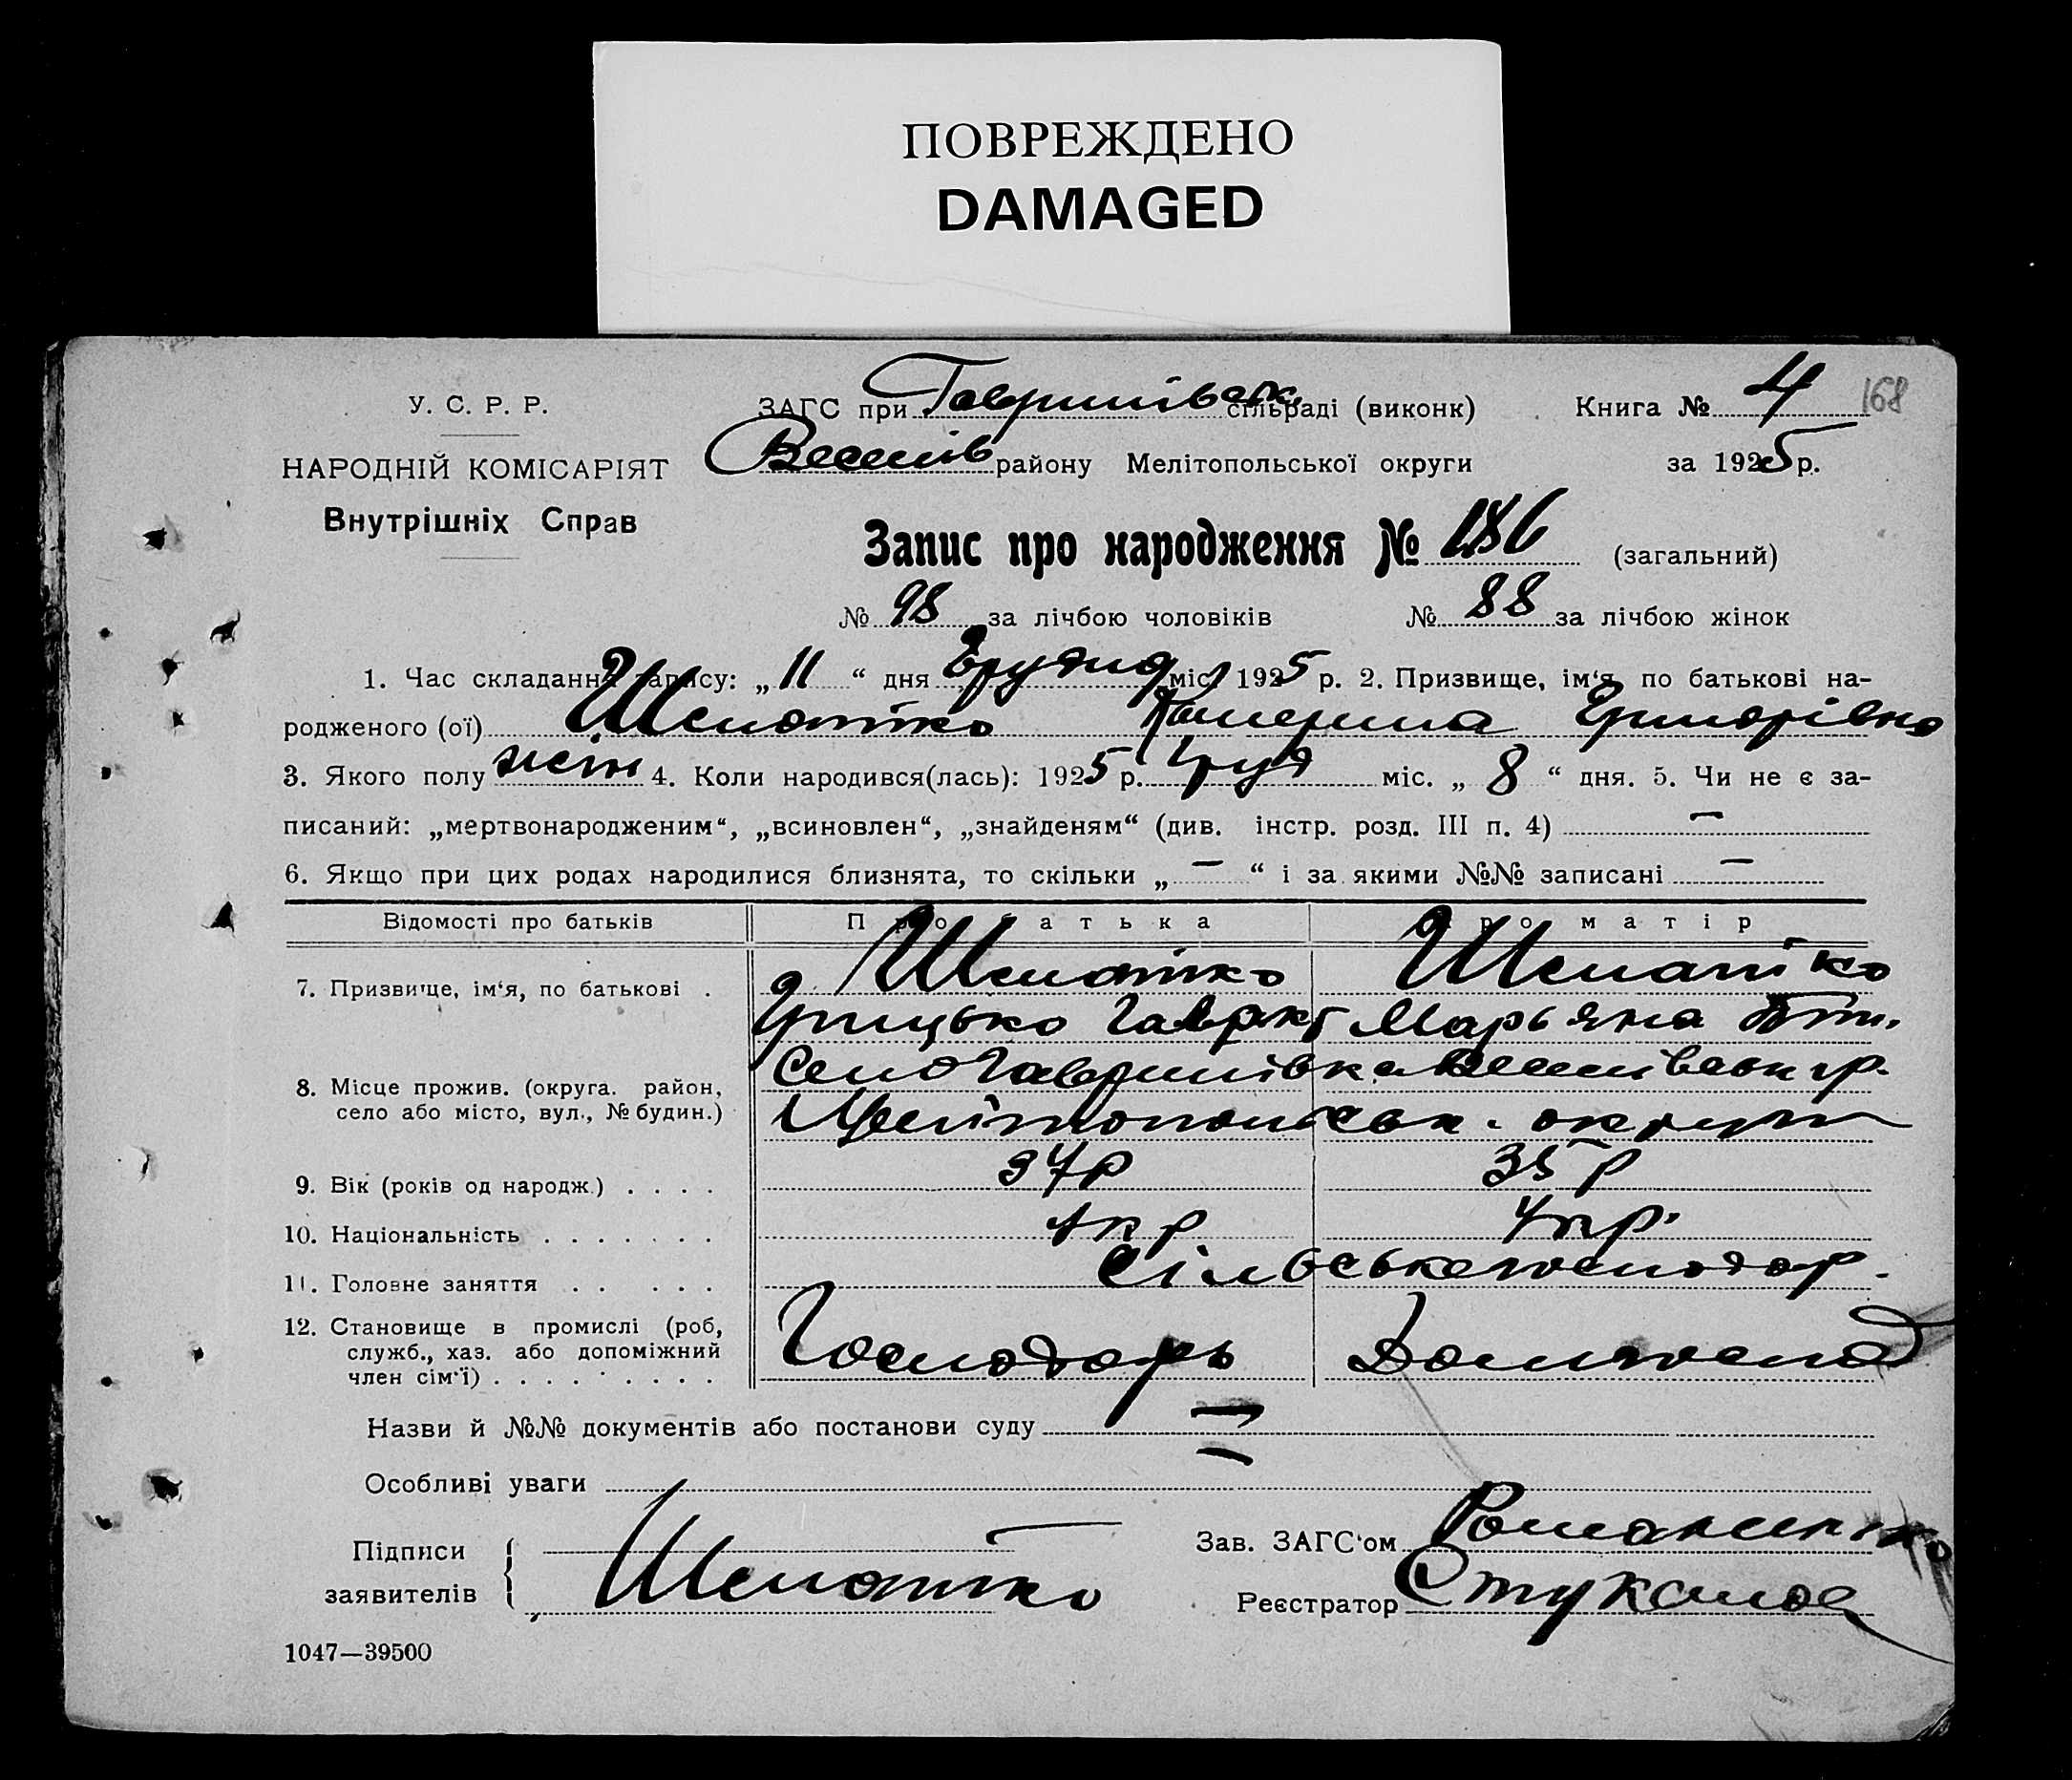 ПОВРЕЖДЕНО
DAMAGED
У. С. Р. Р.
НАРОДНІЙ КОМІСАРІЯТ
Внутрішніх Справ
ЗАГС при Гаврилівськ. сільраді (виконк)
Веселів району Мелітопольської округи
Книга № 4
168
за 1925 р.
Запис про народження № 186 (загальний)
№ 98 за лічбою чоловіків № 88 за лічбою жінок
1. Час складання запису: „ 11 “ дня Грудня міс. 1925 р. 2. Призвище, ім‘я, по батькові на-
родженого (ої) Катерина Григорівна
3. Якого полу жін 4. Коли народився(лась): 1925 р. Груд міс. „ 8 “ дня. 5. Чи не є за-
писаний: „мертвонародженим“, „всиновлен“, „знайденям“ (див. інстр. розд. III п. 4) —
6. Якщо при цих родах народилися близнята, то скільки „ — “ і за якими №№ записані —
Відомості про батьків Про батька Про матір
7. Призвище, ім‘я, по батькові .
Грицько Гавр Марьяна
8. Місце прожив. (округа. район, село Гаврилівка Веселівськ р.
село або місто, вул., № будин.) Мелітопольськ. округи
9. Вік (років од народж.) . . . . 37р 35р
10. Національність . . . . . . . укр укр.
11. Головне заняття . . . . . Сільське господар.
12. Становище в промислі (роб,
служб., хаз. або допоміжний Господарь Домогосп
член сім‘ї) . . . . . . . . . .
Назви й №№ документів або постанови суду —
Особливі уваги —
Підписи
заявителів
Зав. ЗАГС‘ом Романенко
Реєстратор Стукалов
1047—39500